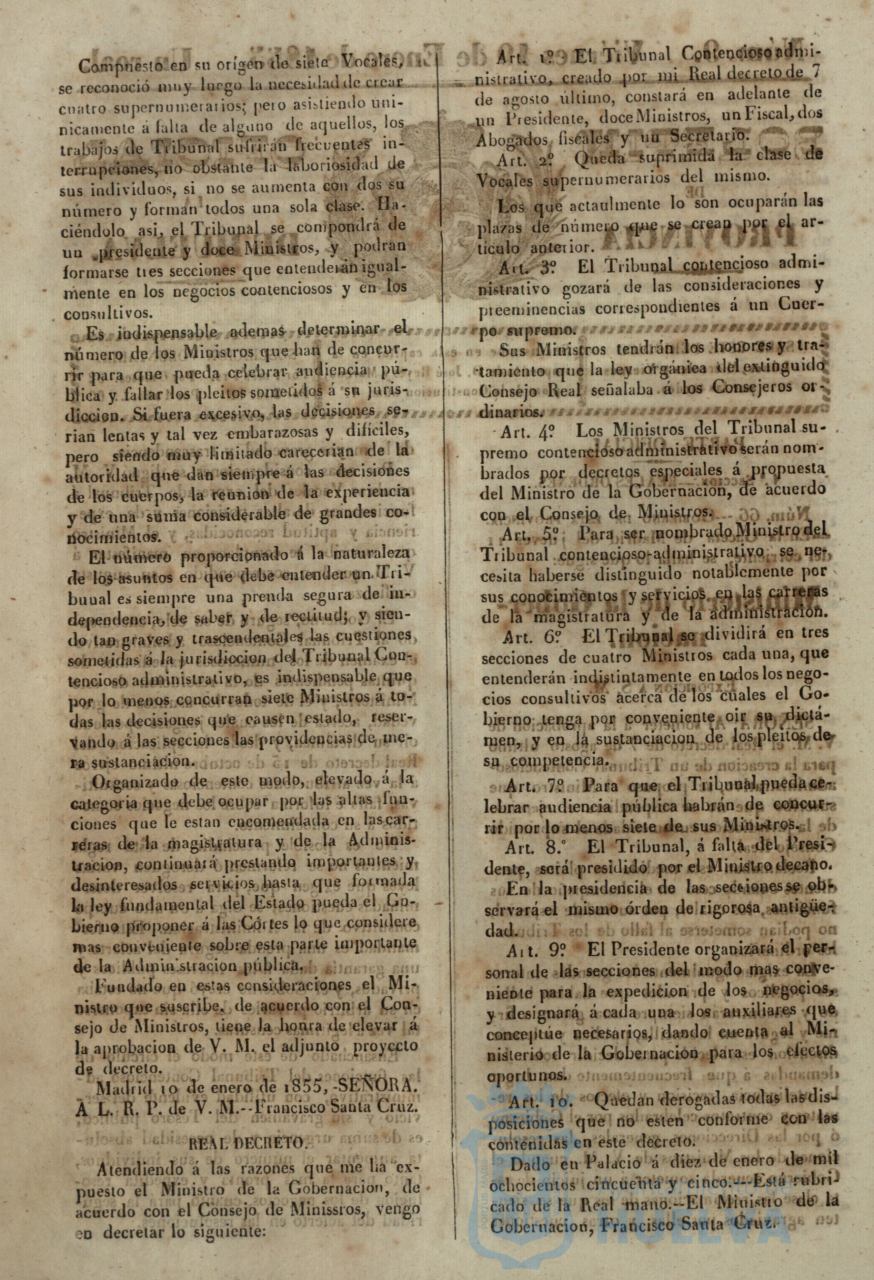 Compuesto en su orígen de siete Vocales,
se reconoció muy luego la necesidad de crear
cuatro supernumerarios; pero asistiendo uni-
nicamente á falta de alguno de aquellos, los
trabajos de Tribunal sufrirán frecuentes in-
terrupciones, no obstante la laboriosidad de
sus individuos, si no se aumenta con dos su
número y forman todos una sola clase. Ha-
ciéndolo asi, el Tribunal se compondrá de
un presidente y doce Ministros, y podran
formarse tres secciones que entenderán igual-
mente en los negocios contenciosos y en los
consultivos.
Es indispensable ademas determinar el
número de los Ministros que han de concur-
rir para que pueda celebrar audiencia pú-
blica y fallar los pleitos sometidos á su juris-
diccion. Si fuera excesivo, las decisiones se-
rian lentas y tal vez embarazosas y difíciles,
pero siendo muy limitado carecerian de la
autoridad que dan siempre á las decisiones
de los cuerpos, la reunion de la experiencia
y de una suma considerable de grandes co-
nocimientos.
El número proporcionado á la naturaleza
de los asuntos en que debe entender un Tri-
buual es siempre una prenda segura de in-
dependencia, de saber y de rectitud; y sien-
do tan graves y trascendentales las cuestiones
sometidas á la jurisdiccion del Tribunal Con-
tencioso administrativo, es indispensable que
por lo menos concurran siete Ministros á to-
das las decisiones que causen estado, reser-
vando á las secciones las providencias de me-
ra sustanciacion.
Organizado de este modo, elevado á la
categoria que debe ocupar por las altas fun-
ciones que le estan encomendada en las car-
reras de la magistratura y de la Adminis-
tracion, continuará prestando importantes y
desinteresados servicios hasta que formada
la ley fundamental del Estado pueda el Go-
bierno proponer á las Córtes lo que considere
mas conveniente sobre esta parte importante
de la Administracion pública.
Fundado en estas consideraciones el Mi-
nistro que suscribe, de acuerdo con el Con-
sejo de Ministros, tiene la honra de elevar á
la aprobacion de V. M. el adjunto proyecto
de decreto.
Madrid 10 de enero de 1855,-SEÑORA.
A L. R. P. de V. M.--Francisco Santa Cruz.
REAL DECRETO.
Atendiendo á las razones que me ha ex-
puesto el Ministro de la Gobernacion, de
acuerdo con el Consejo de Minissros, vengo
en decretar lo siguiente:
Art. 1.º El Tribunal Contencioso admi-
nistrativo, creado por mi Real decreto de 7
de agosto último, constará en adelante de
un Presidente, doce Ministros, un Fiscal, dos
Abogados fiscales y un Secretario.
Art. 2.º Queda suprimida la clase de
Vocales supernumerarios del mismo.
Los que actaulmente lo son ocuparán las
plazas de número que se crean por el ar-
tículo anterior.
Art. 3.º El Tribunal contencioso admi-
nistrativo gozará de las consideraciones y
preeminencias correspondientes á un Cuer-
po supremo.
Sus Ministros tendrán los honores y tra-
tamiento que la ley orgánica del extinguido
Consejo Real señalaba á los Consejeros or-
dinarios.
Art. 4.º Los Ministros del Tribunal su-
premo contencioso administrativo serán nom-
brados por decretos especiales á propuesta
del Ministro de la Gobernacion, de acuerdo
con el Consejo de Ministros.
Art. 5.º Para ser nombrado Ministro del
Tribunal contencioso-administrativo se ne-
cesita haberse distinguido notablemente por
sus conocimientos y servicios en las carreras
de la magistratura y de la administracion.
Art. 6.º El Tribunal se dividirá en tres
secciones de cuatro Ministros cada una, que
entenderán indistintamente en todos los nego-
cios consultivos acerca de los cuales el Go-
bierno tenga por conveniente oir su dictá-
men, y en la sustanciacion de los pleitos de
su competencia.
Art. 7.º Para que el Tribunal pueda ce-
lebrar audiencia pública habrán de concur-
rir por lo menos siete de sus Ministros.
Art. 8.º El Tribunal, á falta del Presi-
dente, será presidido por el Ministro decano.
En la presidencia de las secciones se ob-
servará el mismo órden de rigorosa antigüe-
dad.
Art. 9.º El Presidente organizará el per-
sonal de las secciones del modo mas conve-
niente para la expedicion de los negocios,
y designará á cada una los auxiliares que
conceptúe necesarios, dando cuenta al Mi-
nisterio de la Gobernacion para los efectos
oportunos.
Art. 10. Quedan derogadas todas las dis-
posiciones que no esten conforme con las
contenidas en este decreto.
Dado en Palacio á diez de enero de mil
ochocientos cincuenta y cinco.--Está rubri-
cado de la Real mano.--El Ministro de la
Gobernacion, Francisco Santa Cruz.